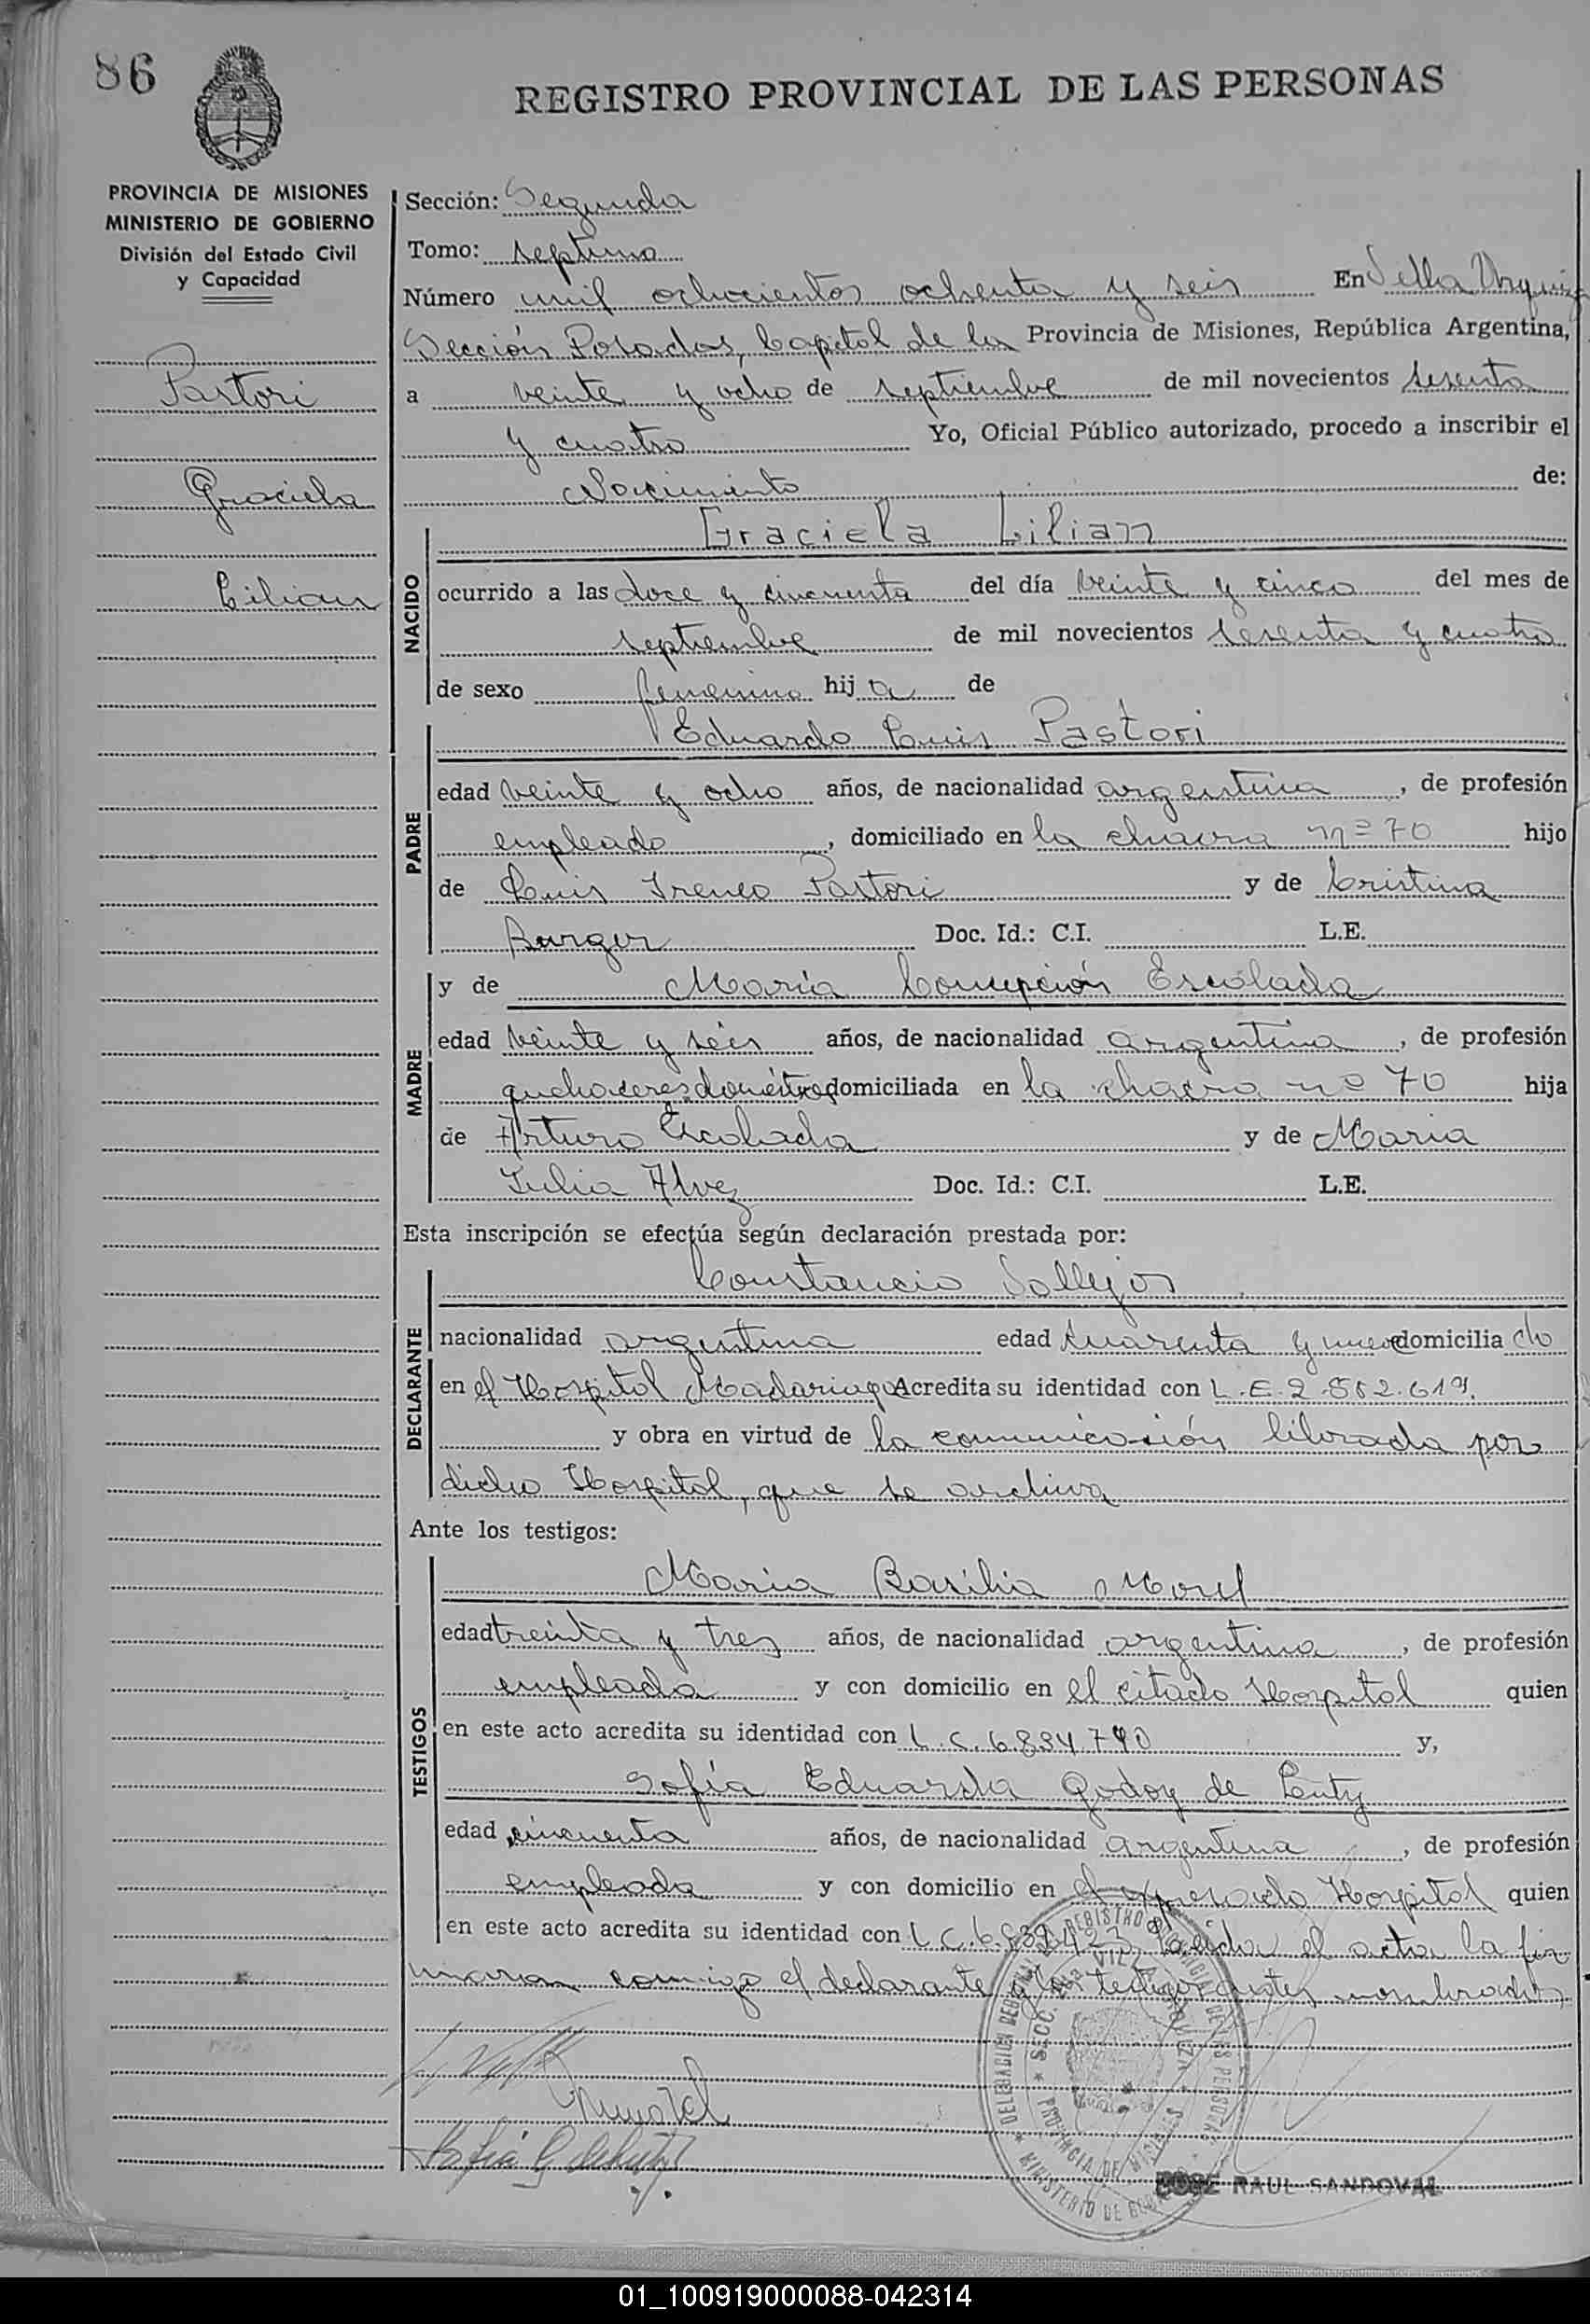 86
REGISTRO PROVINCIAL DE LAS PERSONAS
PROVINCIA DE MISIONES
MINISTERIO DE GOBIERNO
División del Estado Civil
y Capacidad
Pastori
Graciela
Lilian
Sección: Segunda
Tomo: septimo
Número mil ochocientos ochenta y seis En Villa Urquiza
Sección Posadas, Capital de la Provincia de Misiones, República Argentina,
a veinte y ocho de septiembre de mil novecientos sesenta
y cuatro Yo, Oficial Público autorizado, procedo a inscribir el
Nacimiento de:
NACIDO
Graciela Lilian
ocurrido a las doce y cincuenta del día veinte y cinco del mes de
septiembre de mil novecientos sesenta y cuatro
de sexo femenino hija de
PADRE
Eduardo Luis Pastori
edad veinte y ocho años, de nacionalidad argentina, de profesión
empleado, domiciliado en la chacra nº 70 hijo
de Luis Ireneo Pastori y de Cristina
Burger Doc. Id.: C.I. L.E.
MADRE
y de María Concepción Escolada
edad veinte y séis años, de nacionalidad argentina, de profesión
quehaceres domésticos domiciliada en la chacra nº 70 hija
de Arturo Escolada y de Maria
Julia Alvez Doc. Id.: C.I. L.E.
Esta inscripción se efectúa según declaración prestada por:
DECLARANTE
Constancio Vallejos
nacionalidad argentina edad cuarenta y nueve domiciliado
en el Hospital Madariaga Acredita su identidad con L.E. 2.562.619.
y obra en virtud de la comunicación librada por
dicho Hospital, que se archiva
Ante los testigos:
TESTIGOS
María Basilia Morel
edad treinta y tres años, de nacionalidad argentina, de profesión
empleada y con domicilio en el citado Hospital quien
en este acto acredita su identidad con L.C. 6.834.790 y,
Sofía Eduarda Godoy de Lenty
edad cincuenta años, de nacionalidad argentina, de profesión
empleada y con domicilio en el expresado Hospital quien
en este acto acredita su identidad con L.C. 6.839.423 Leída el acta la fir
maron conmigo el declarante y los testigos antes nombrados
Mmorel
Sofia G de Lenty
JOSE RAUL SANDOVAL
01_100919000088-042314